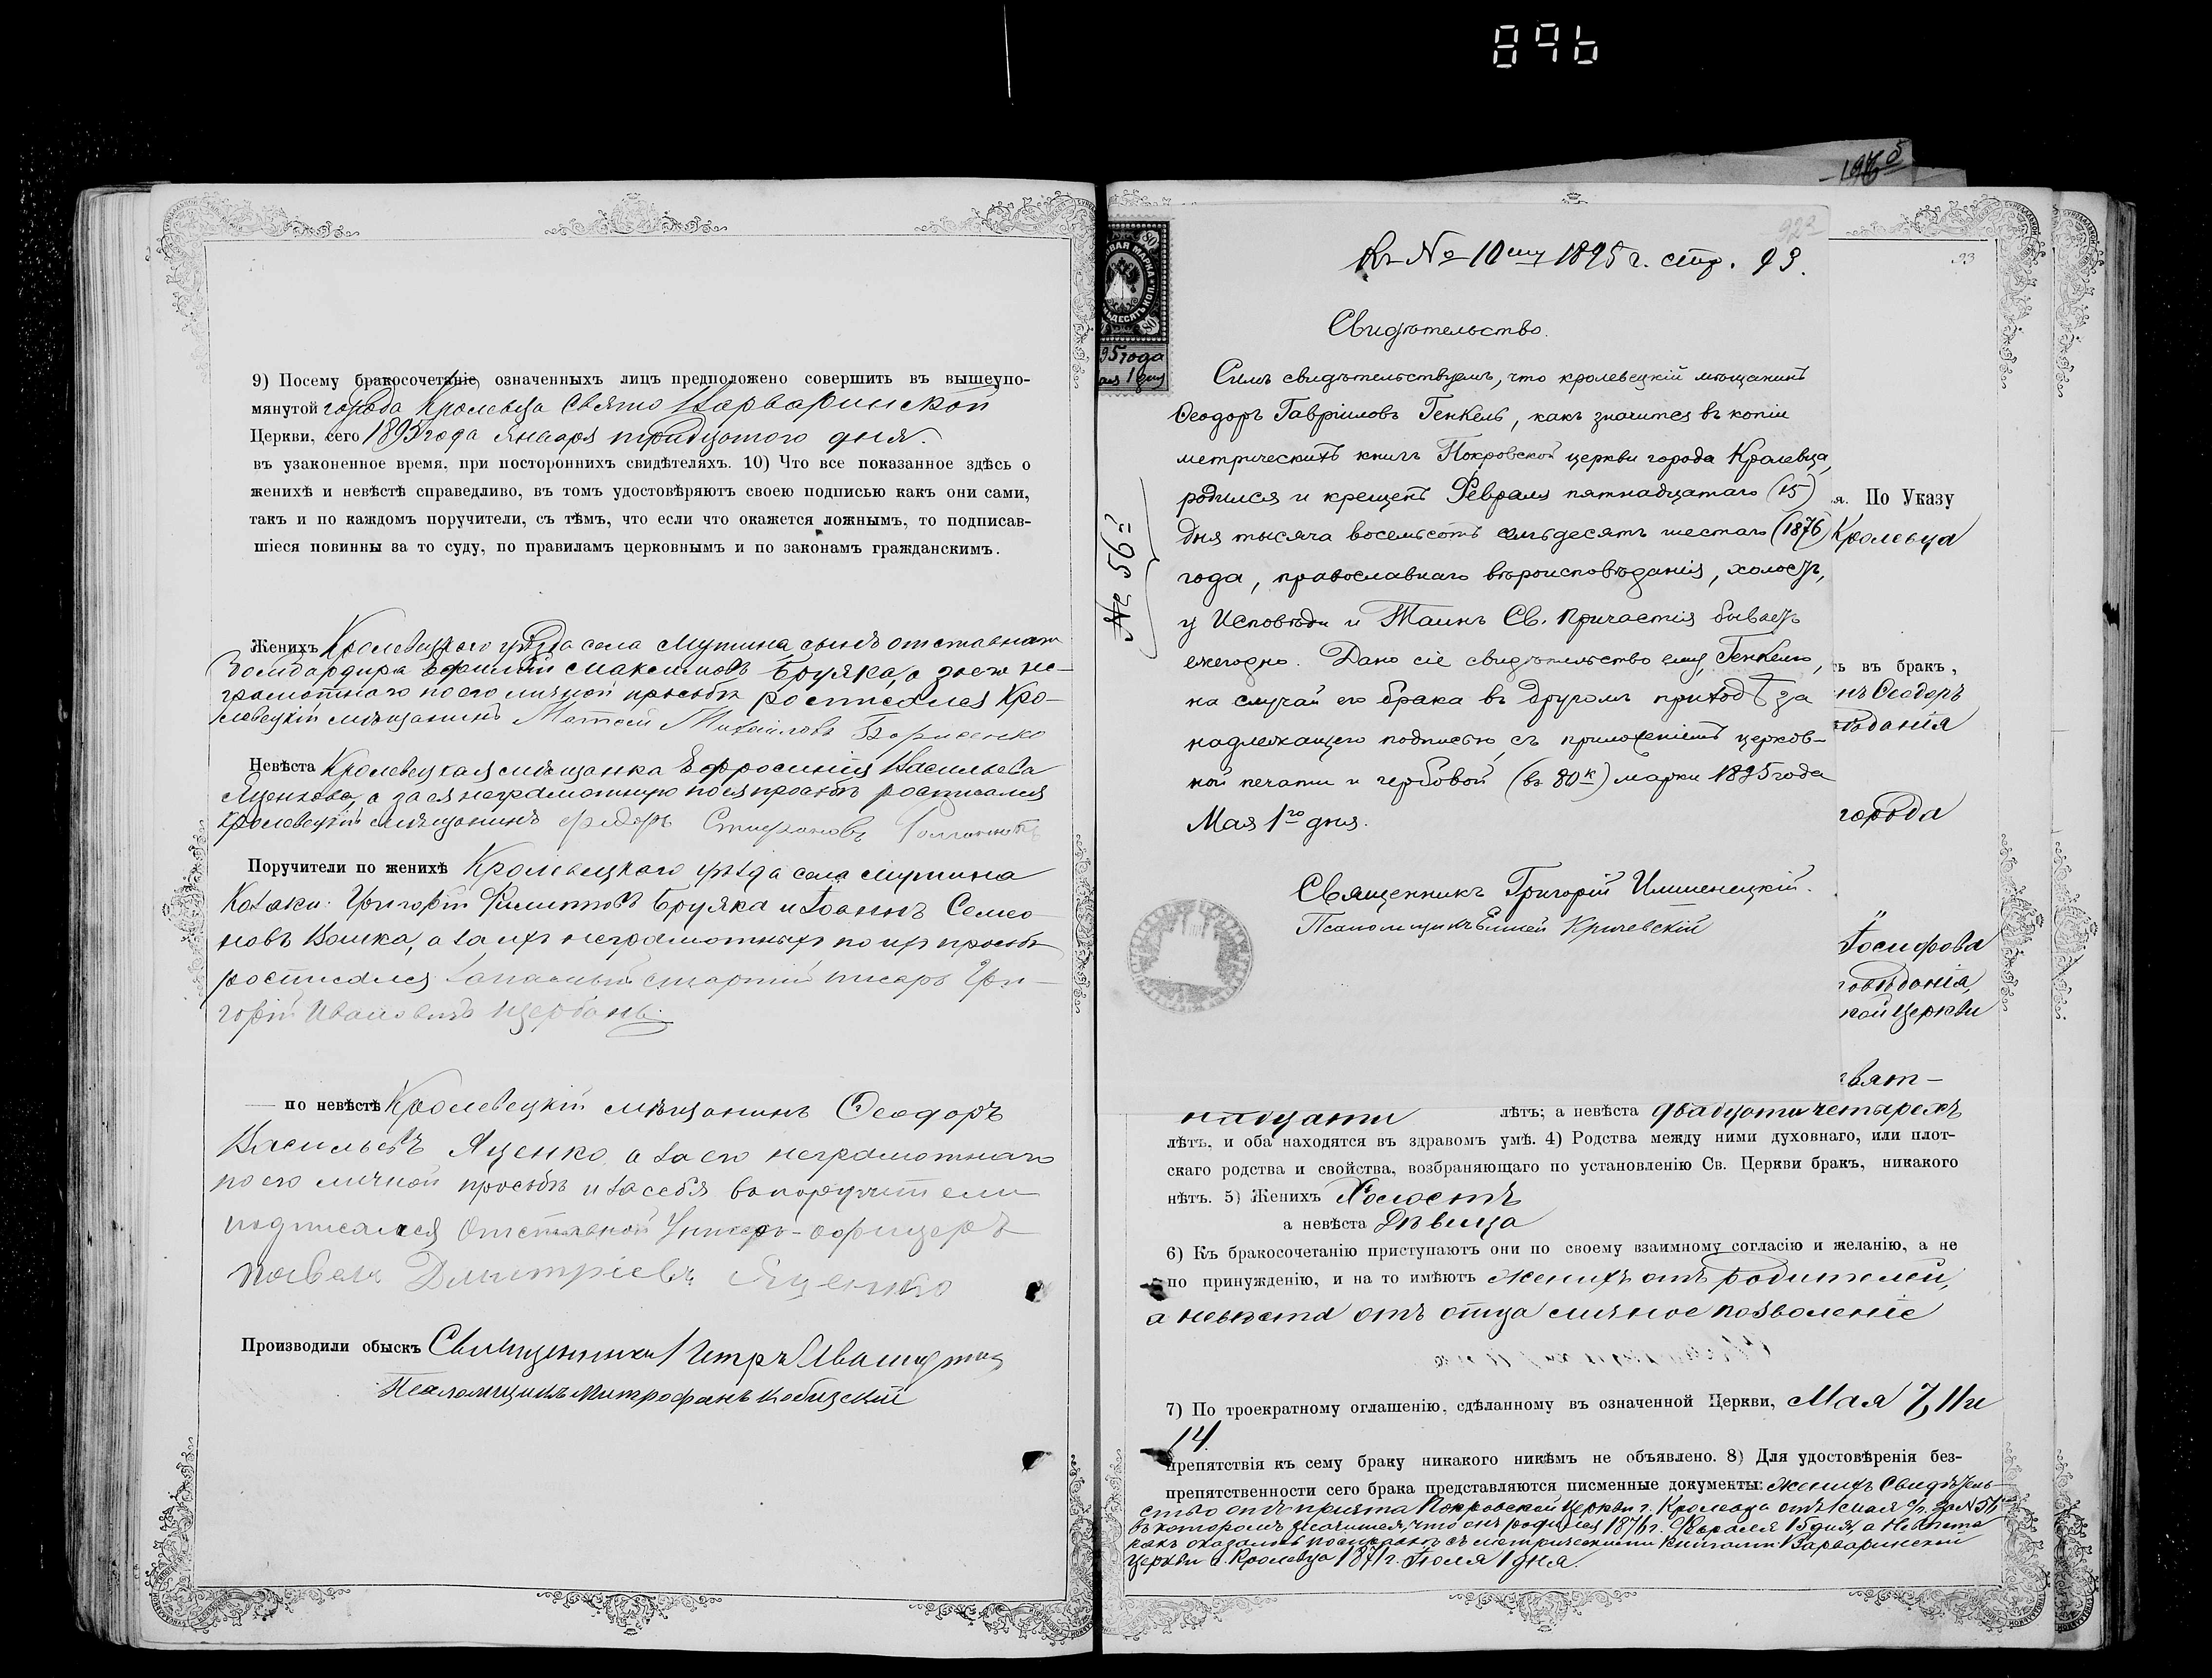 896
1965
9) Посему бракосочетаніе означенныхъ лицъ предположено совершить въ вышеупо-
мянутой города Кролевца Свято Варваринской
Церкви, сего 1895 года Января тридцатого дня.
въ узаконенное время, при постороннихъ свидѣтеляхъ. 10) Что все показанное здѣсь о
женихѣ и невѣстѣ справедливо, въ томъ удостовѣряютъ своею подписью какъ они сами,
такъ и по каждомъ поручители, съ тѣмъ, что если что окажется ложнымъ, то подписав-
шіеся повинны за то суду, по правиламъ церковнымъ и по законамъ гражданскимъ.
Женихъ Кролевецкого уѣзда села Мутина сынъ отставнаго
бомбардира Максимовъ Бруяка, а за его не-
грамотнаго по его личной просьбѣ росписался Кро-
левецкій мѣщанинъ Матвей Михайловъ Борисенко
Невѣста Кролевецкая мѣщанка Ефросинія Васильева
Яценкова, а за ея неграмотную по ея просьбѣ росписался
Кролевецкій мѣщанинъ Федоръ Стефановъ
Поручители по женихѣ Кролевецкого уѣзда села Мутина
Козаки: Григорій Филиповъ Бруяка и Іоаннъ Семео
новъ Вошка, а за ихъ неграмотныхъ по ихъ просьбѣ
росписался запасный старшій писарь Гри-
горій Ивановичъ Щербань.
— по невѣстѣ Кролевецкій мѣщанинъ Ѳеодоръ
Васильевъ Яценко а за его неграмотнаго
по его личной просьбѣ и за себя вопоручители
подписался Отставной Унтеръ-офицеръ
Павелъ Дмитріевъ Яценко
Производили обыскъ Священникъ Петръ
Псаломщикъ Митрофанъ Кобизскій
922
93
Къ № 10му 1895 г. стр. 93.
95 года
1 дня
№ 56й
Свидѣтельство.
Симъ свидѣтельствуемъ, что кролевецкій мѣщанинъ
Ѳеодоръ Гавріиловъ Генкель, какъ значится въ копіи
метрическихъ книгъ Покровской церкви города Кролевца,
родился и крещенъ Февраля пятнадцатаго (15)
дня тысяча восемьсотъ семьдесятъ шестаго (1876)
года, православнаго вѣроисповѣданія, холостъ,
у Исповѣди и Таинъ Св. Причастія бываетъ
ежегодно. Дано сіе свидѣтельство ему, Генкелю,
на случай его брака въ другомъ приходѣ за
надлежащею подписью, съ приложеніемъ церков-
ной печати и гербовой (въ 80 к) марки 1895 года
Мая 1го дня.
Священникъ Григорій Имшенецкій.
Псаломщикъ Елисей Кричевскій
я. По Указу
Кролевца
ть въ бракъ,
нъ Ѳеодоръ
ѣданія
города
Іосифова
овѣданія,
кой Церкви
евят-
надцати лѣтъ; а невѣста двадцати четырехъ
лѣтъ, и оба находятся въ здравомъ умѣ. 4) Родства между ними духовнаго, или плот-
скаго родства и свойства, возбраняющаго по установленію Св. Церкви бракъ, никакого
нѣтъ. 5) Женихъ Холостъ
а невѣста Дѣвица
6) Къ бракосочетанію приступаютъ они по своему взаимному согласію и желанію, а не
по принужденію, и на то имѣютъ женихъ отъ родителей,
а невѣста отъ отца личное позволеніе
7) По троекратному оглашенію, сдѣланному въ означенной Церкви, Мая 7, 11 и
14.
препятствія къ сему браку никакого никѣмъ не объявлено. 8) Для удостовѣренія без-
препятственности сего брака представляются писменные документы: женихъ Свидѣтель
ство отъ причта Покровской Церкви г. Кролевца отъ 1 мая с/г. за № 56
въ которомъ значится, что онъ родился 1876 г. Февраля 15 дня, а Невѣста
какъ оказалось по справкѣ съ метрическими книгами Варваринской
Церкви г. Кролевца 1871 г. Іюля 1 дня.